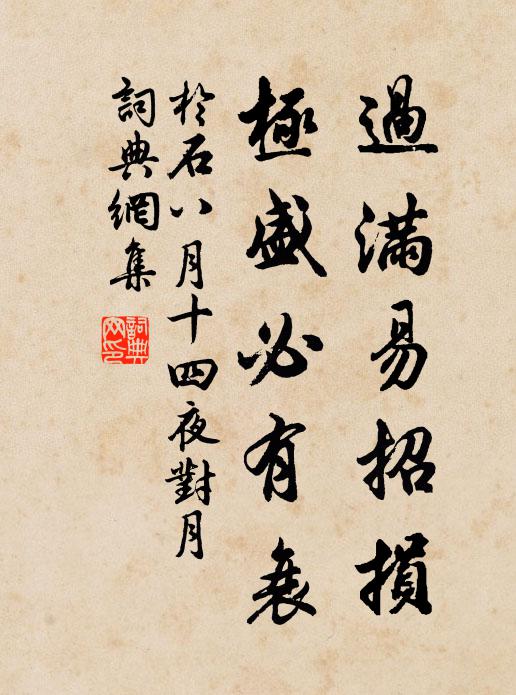 過滿易招損
極盛必有衰
於石八月十四夜對月
詞典網集
詞典網印